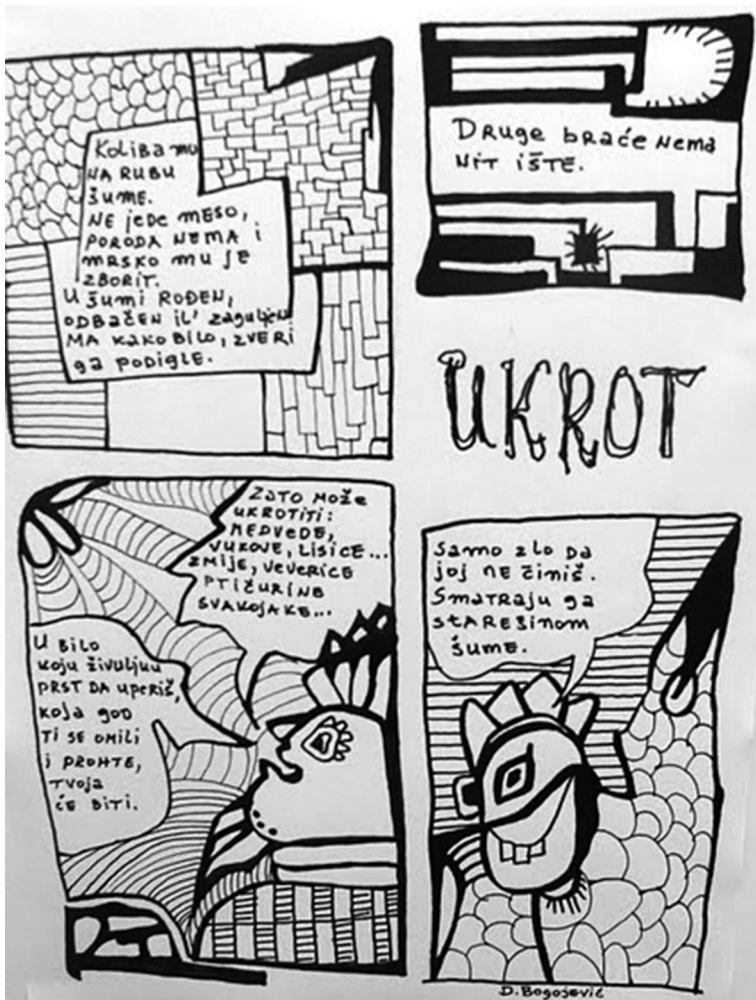 Koliba mu
NA RUBU
šume.
NE jede meso,
PORODA NEMA i
mRSKO mu je
ZBORIT.
U šumi ROĐEN,
ODBAČEN il' zagubljen
MA KAKO BILO, ZVERI
ga PODIGLE.
Druge braće Nema
Nit ište.
UKROT
ZATO može
UKROTITI:
MEDVEDE,
VUKOVE, LISICE...
ZMIJE, VEVERICE
PTIČURINE
SVAKOJAKE...
U BILO
koju živuljku
PRST DA uperiš,
koja god
Ti SE OMILI
i PROHTE,
TVoja
ĆE BITI.
Samo zlo da
joj NE činiš.
Smatraju ga
staREšinom
šume.
D. Bogojević